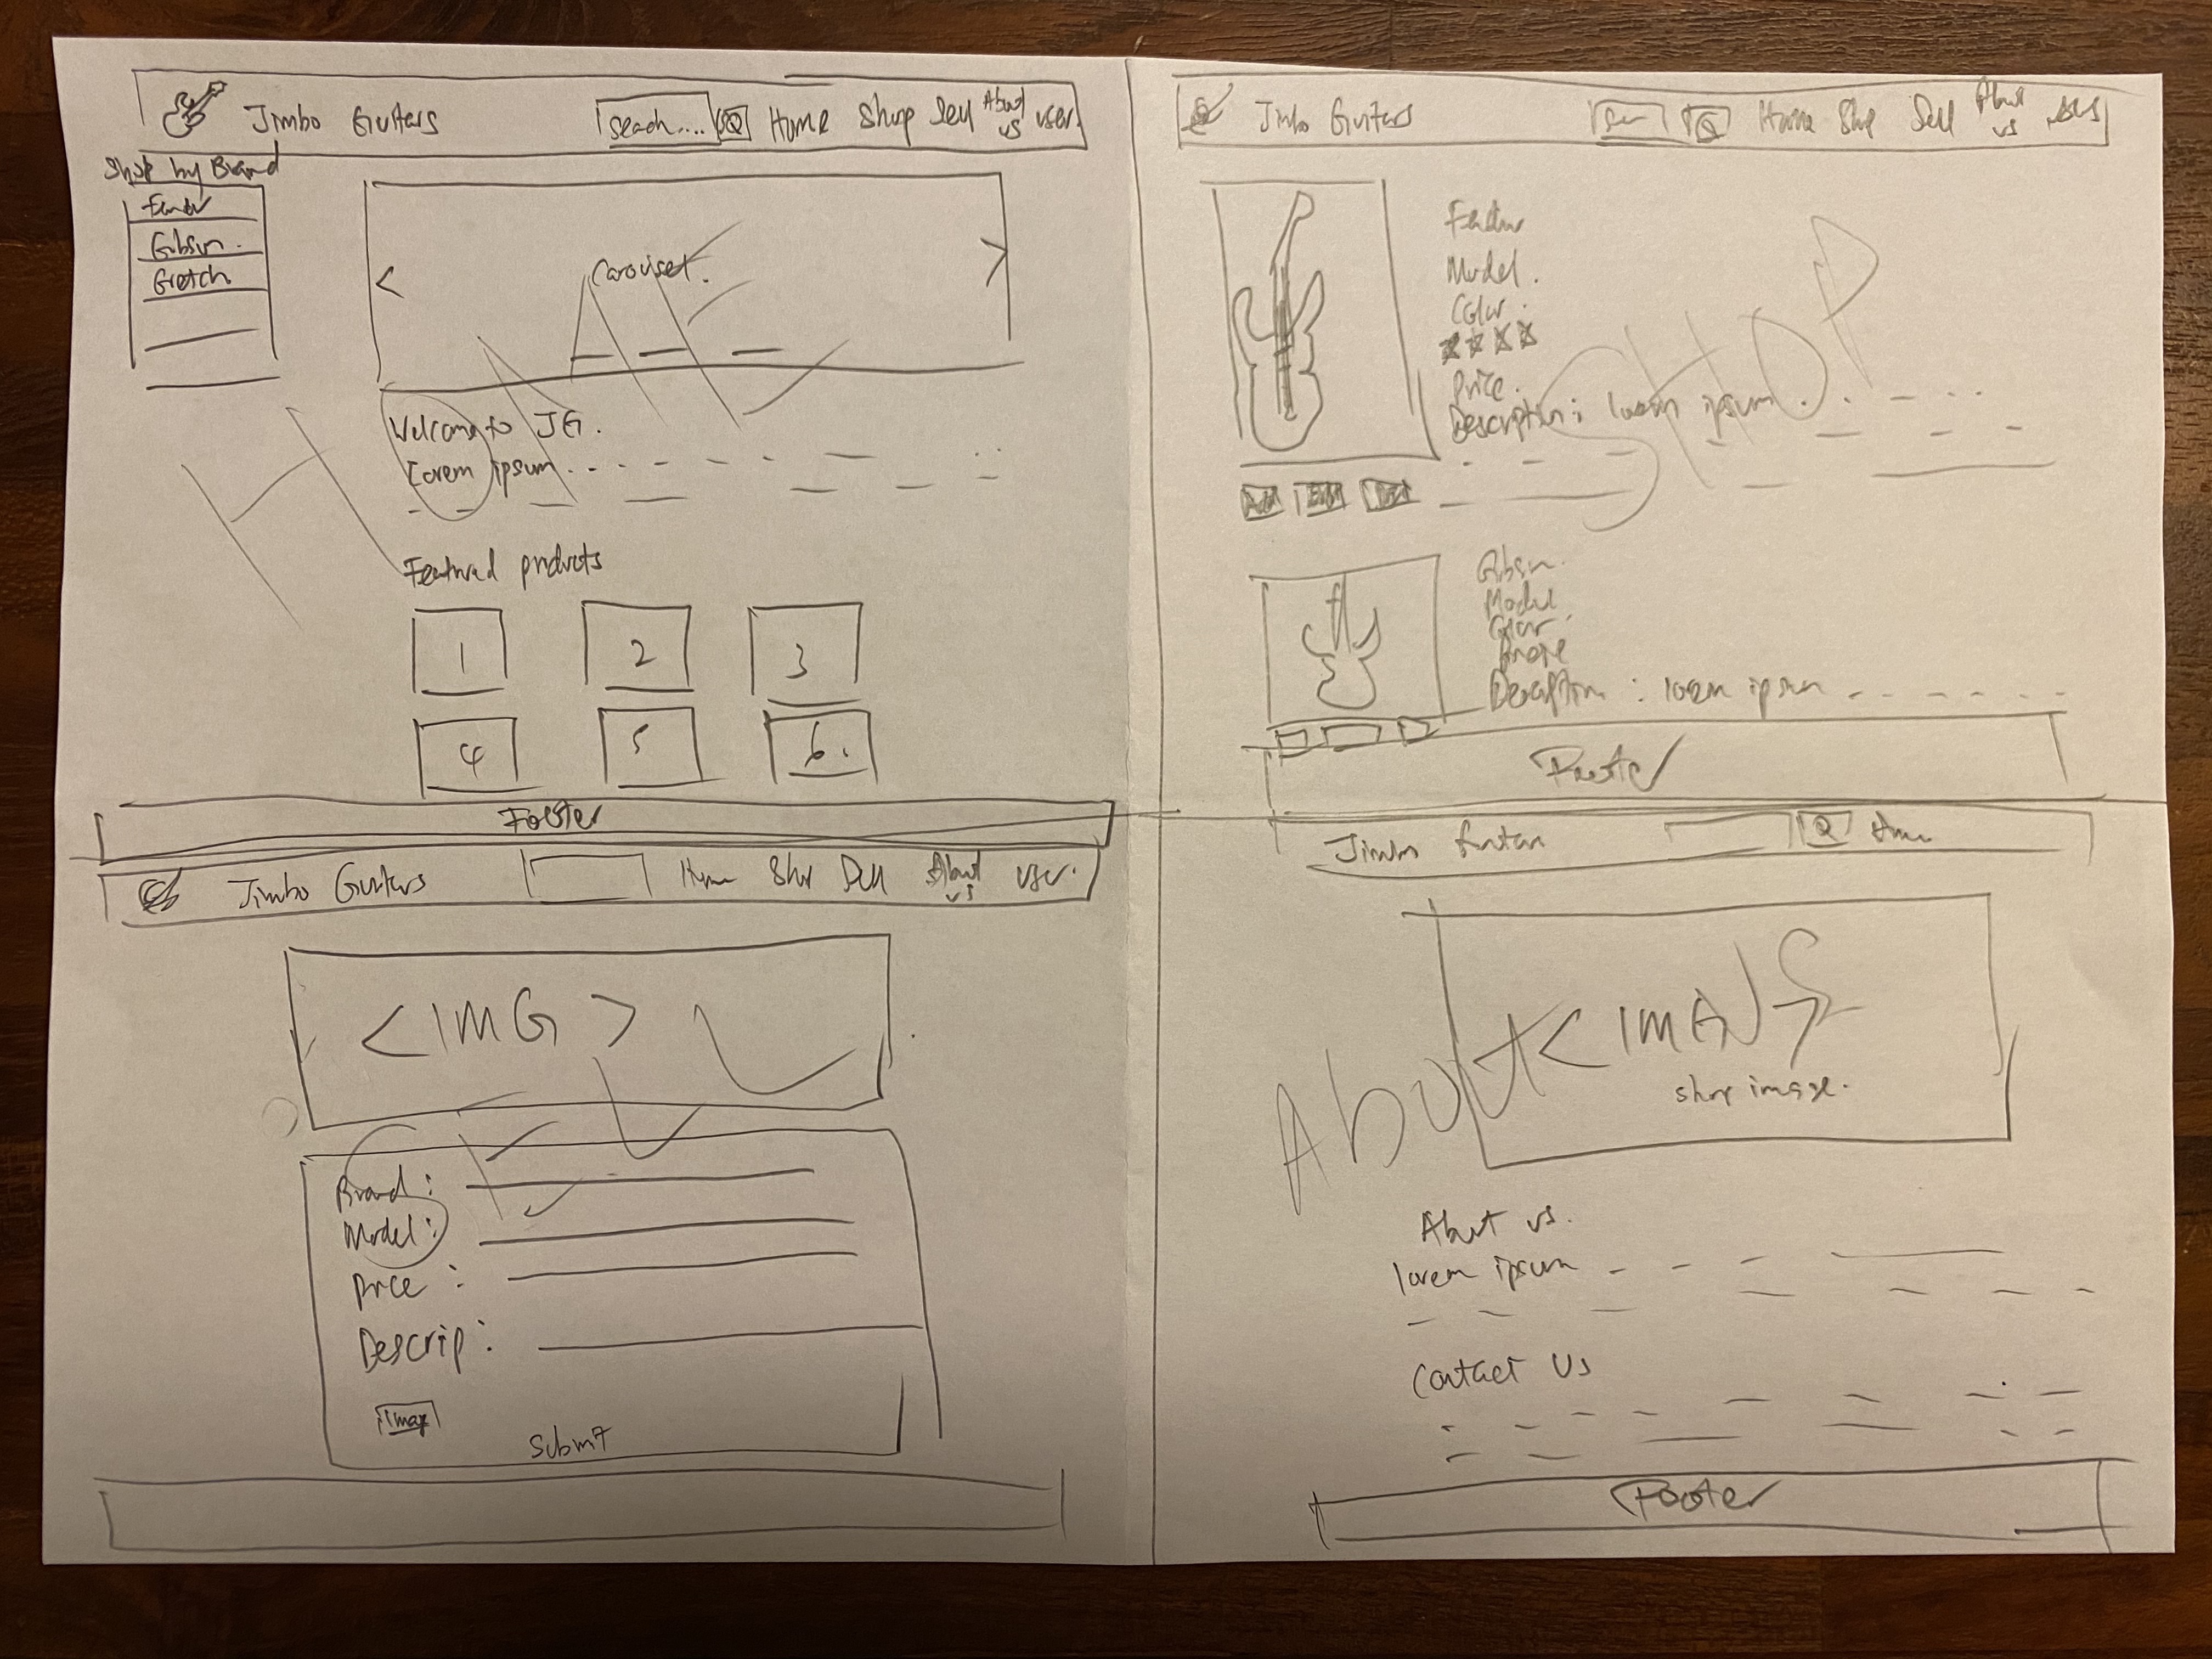 Jimbo Guitars
Seach....
Home Shop Sell About us user.
Shop by Brand
Fender
Gibson.
Gretch
< Carousel. >
HOME
Welcome to JG.
Lorem ipsum
Featured products
1 2 3
4 5 6.
Footer
Jimbo Guitars
Home Shop Sell About us user.
Home Shop Sell About us
Model.
Color.
Price.
Description: lorem ipsum
SHOP
Gibson.
Model
Color.
Description : lorem ipsum
Footer
Jimbo Guitars
Home Shop Sell About us user.
<IMG>
SELL
Brand:
Model:
Price :
Descrip:
Image
Submit
Jimbo
Home
<IMG>
shop image.
About US
About us.
lorem ipsum
Contact Us
Footer